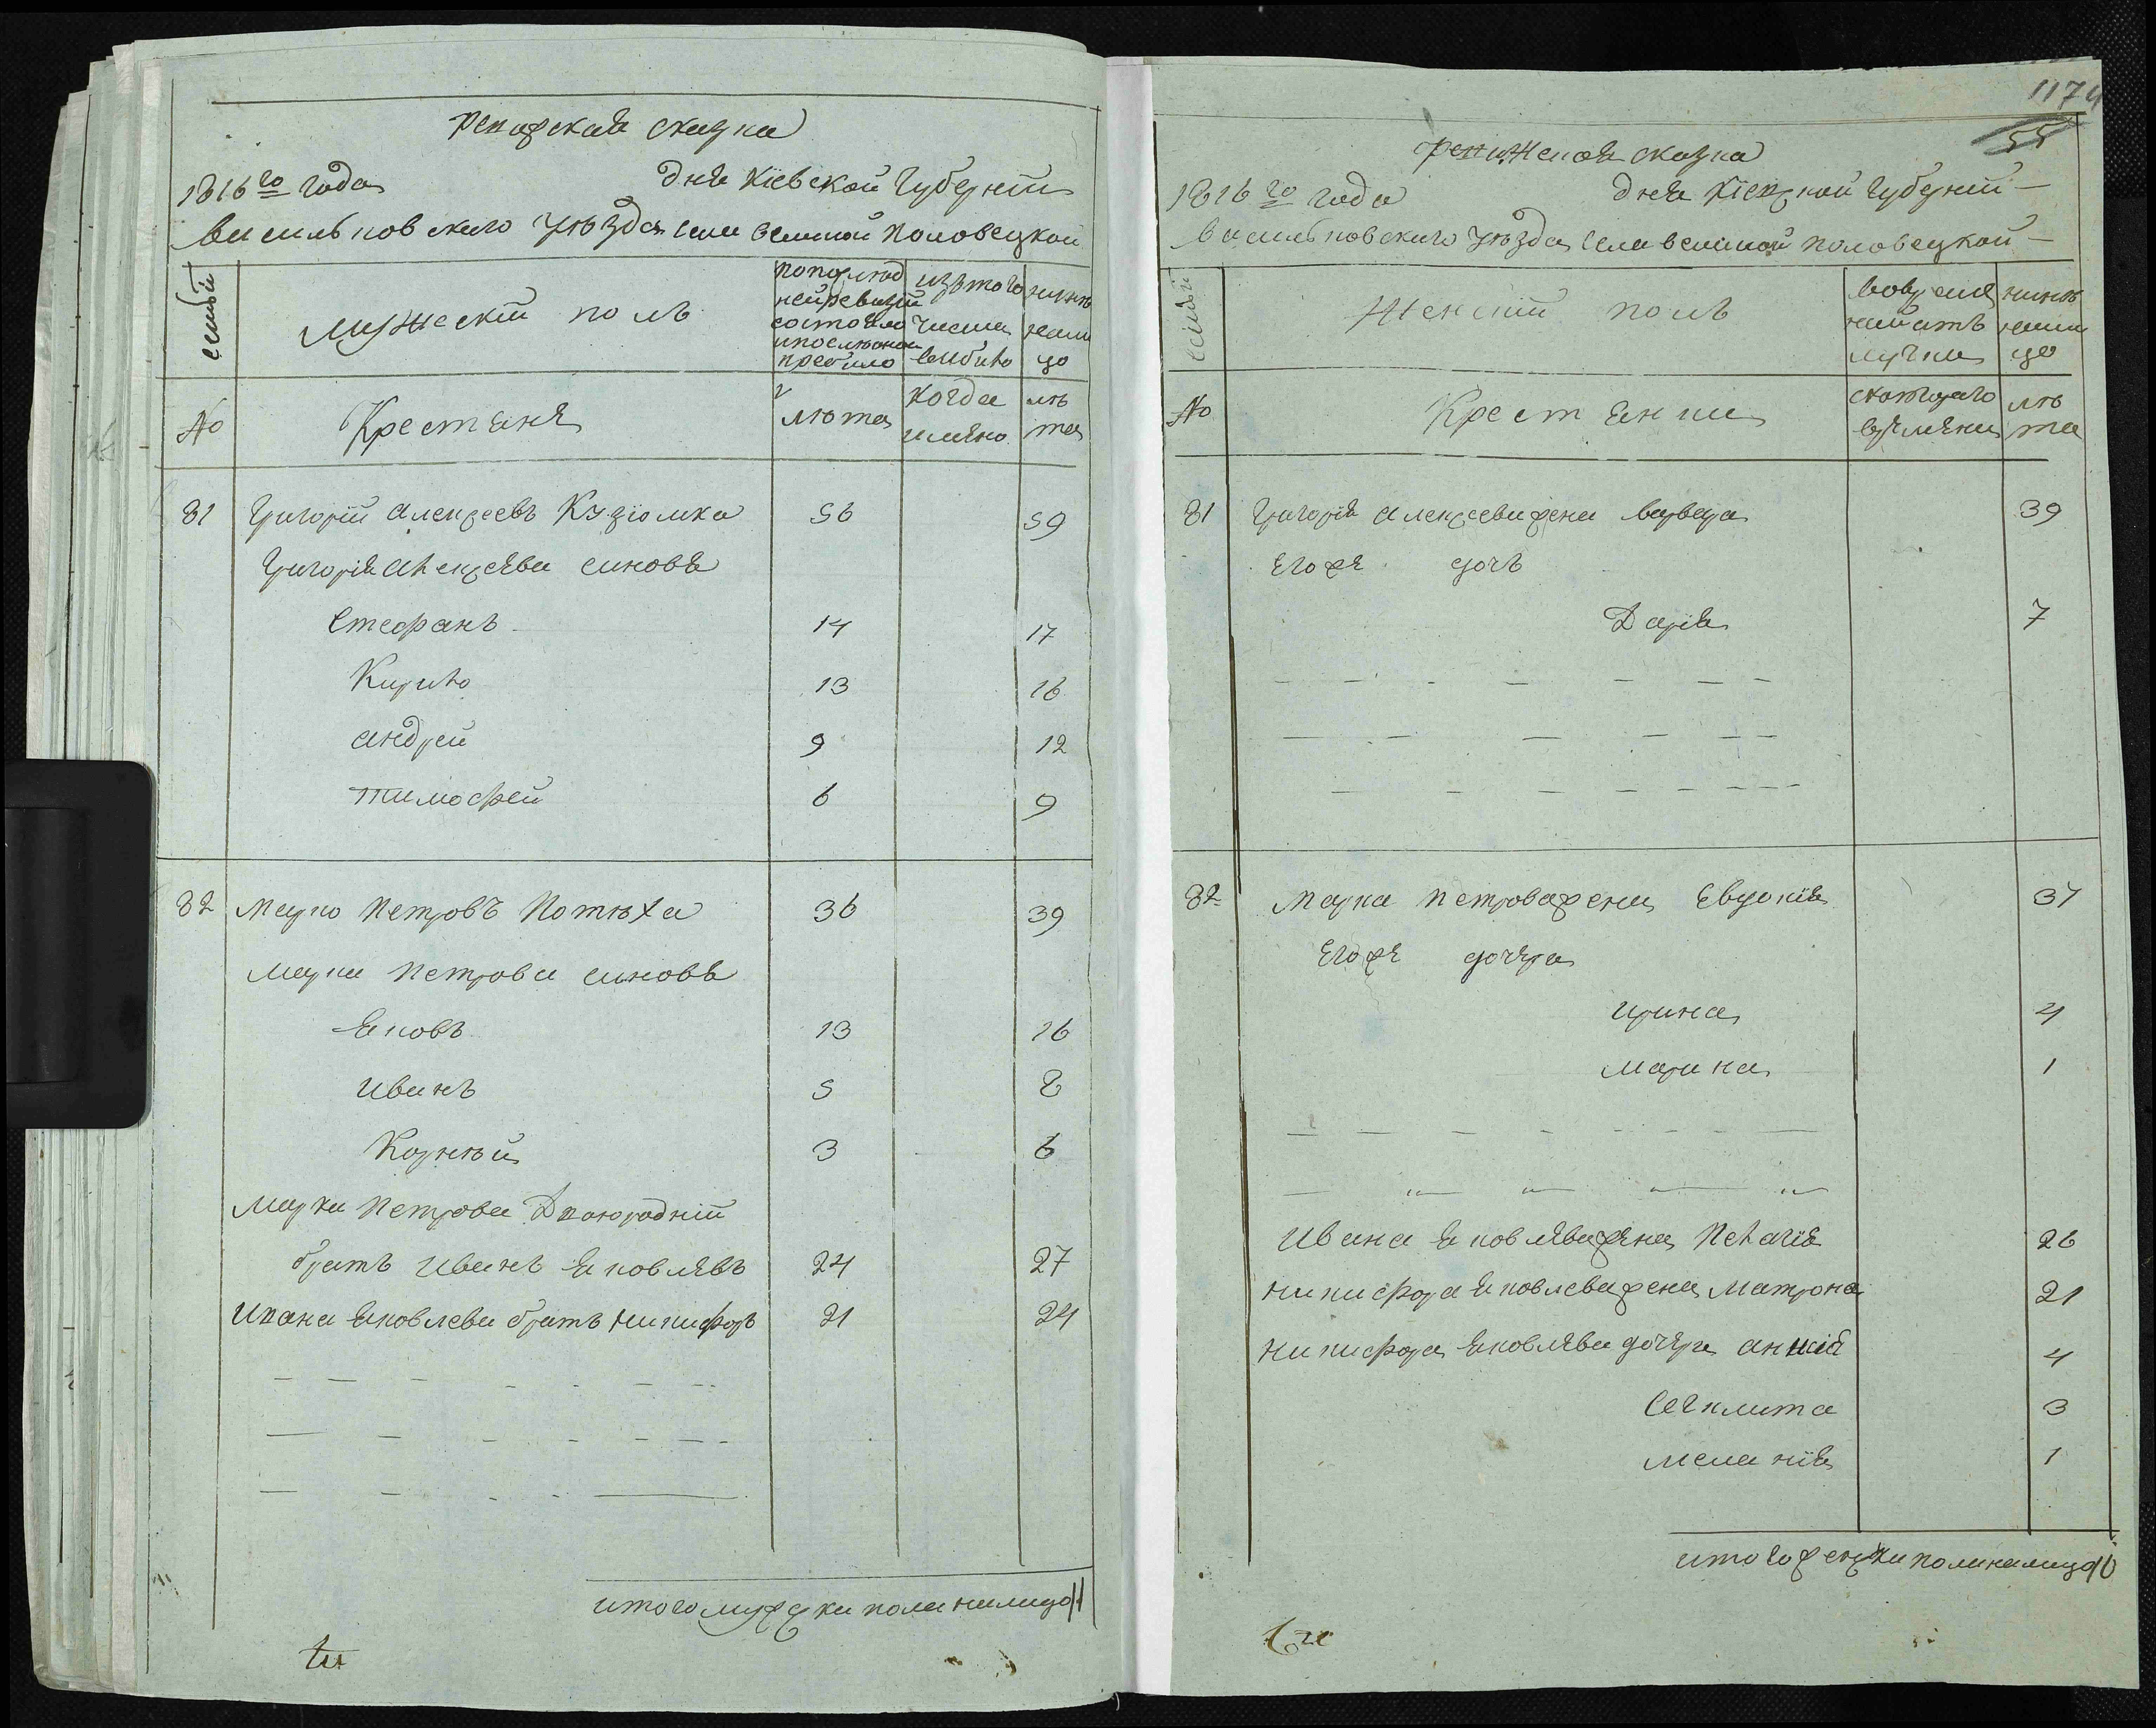 Ревизская сказка
1816го года дня Кіевской Губерніи
Васильковского Уезда села великой Половецкой
семьи
Мужескій полъ
по последней ревизіи состояло и после оной прибыло
изъ того числа выбыло
ныне на лицо
№
Крестяне
лета
когда имяно
лета
81 Григорій Алексеевъ Кузіомка 56 59
Григорія Алексеева синовя
Стефанъ 14 17
Кирило 13 16
Андрей 9 12
Тимофей 6 9
82 Марко Петровъ Потюха 36 39
Марка Петрова синовя
Яковъ 13 16
Иванъ 5 8
Корней 3 6
Марка Петрова Двоюродній
братъ Иванъ Яковлевъ 24 27
Ивана Яковлева братъ Никифоръ 21 24
итого мужеска пола на лицо 11
1174
55
Ревизская сказка
1816го года дня Кіевской Губерніи
Васильковского Уезда села великой Половецкой
семьи
Женскій полъ
во временной отлучки
ныне на лицо
№
Крестянки
с котораго времени
лета
81 Григорія Алексеева жена Варвара 39
Его же дочь
Дарія 7
82 Марка Петрова жена Евдокія 37
Его же дочера
Ирина 4
Марина 1
Ивана Яковлева жена Пелагія 26
Никифора Яковлева жена Матрона 21
Никифора Яковлева дочери Анна 4
Секлита 3
Меланія 1
итого женска пола на лицо 10